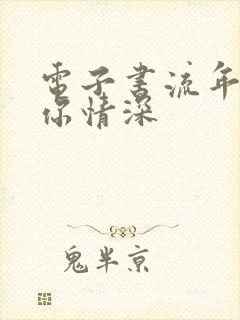 電子書流年
你情深
鬼半京